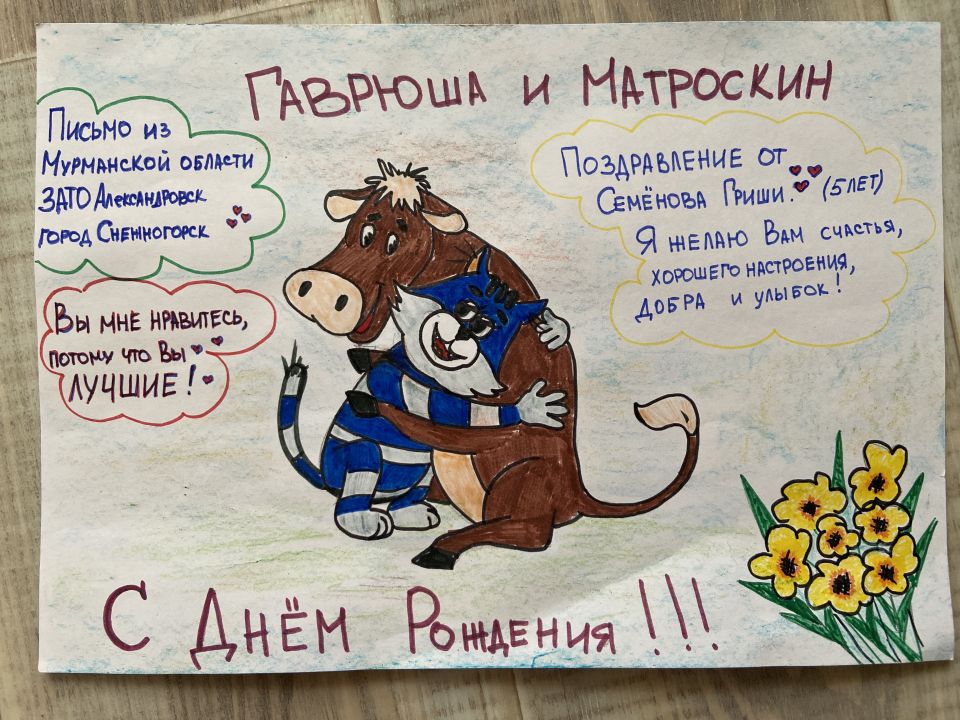 Гаврюша и Матроскин
Письмо из
Мурманской области
ЗАТО Александровск
город Снежногорск
Вы мне нравитесь,
потому что Вы
лучшие!
Поздравление от
Семёнова Гриши. (5лет)
Я желаю Вам счастья,
хорошего настроения,
добра и улыбок!
С Днём Рождения!!!